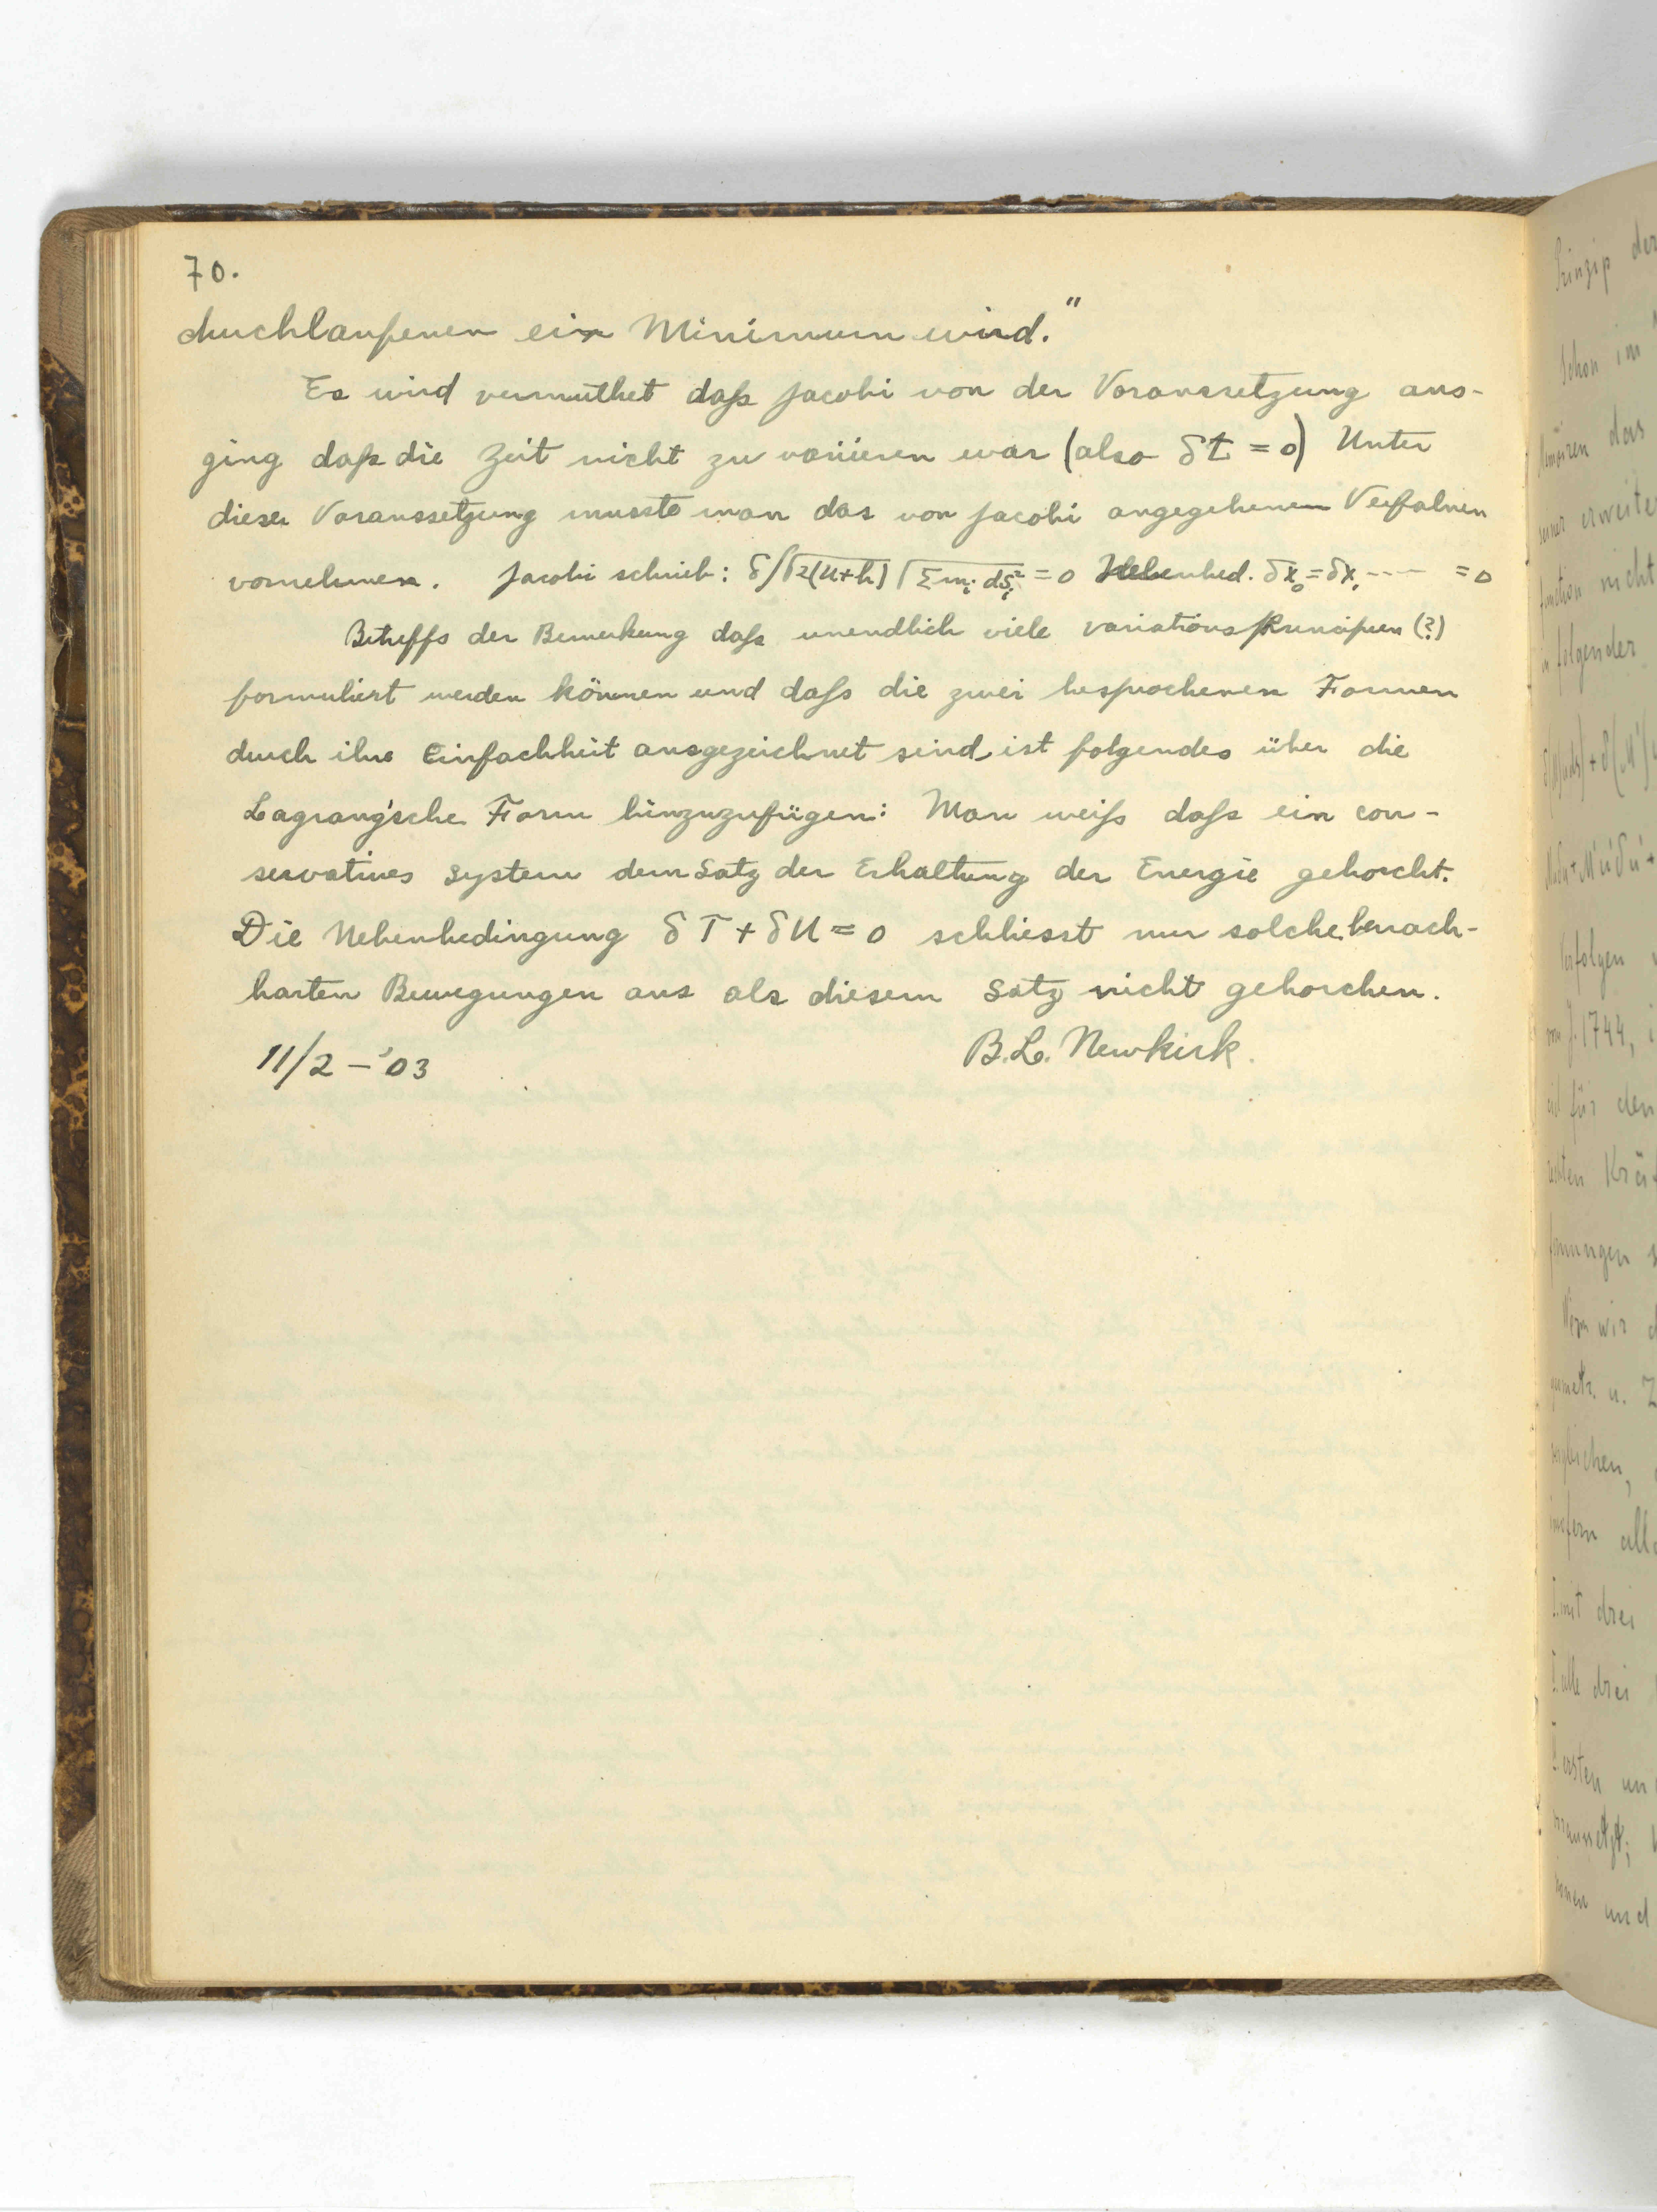 70.
durchlaufenen ein Minimum wird."
Es wird vermuthet daß Jacobi von der Voraussetzung aus-
ging daß die Zeit nicht zu variieren war (also δt = 0) Unter
dieser Voraussetzung musste man das von Jacobi angegebenen Verfahren
vornehmen. Jacobi schrieb: δ∫√2(U+h) √Σmᵢ dsᵢ² = 0 Nebenbed. δx₀ = δx₁ ---- = 0
Betreffs der Bemerkung daß unendlich viele variations Principien (?)
formuliert werden können und daß die zwei besprochenen Formen
durch ihre Einfachheit ausgezeichnet sind, ist folgendes über die
Lagrang'sche Form hinzuzufügen: Man weiß daß ein con-
servatives System dem Satz der Erhaltung der Energie gehorcht.
Die Nebenbedingung δT + δU = 0 schliesst nur solche benach-
barten Bewegungen aus als diesem Satz nicht gehorchen.
11/2 – '03 B.L. Newkirk.
Prinzip der
Schon im
das
seiner erweiter
function nicht
in folgender
Verfolgen
vom J. 1744,
für den
Krä
Wenn wir
geometr. u. Z
vergleichen,
insofern all
mit drei
alle drei
ersten un
voraussetzt;
und